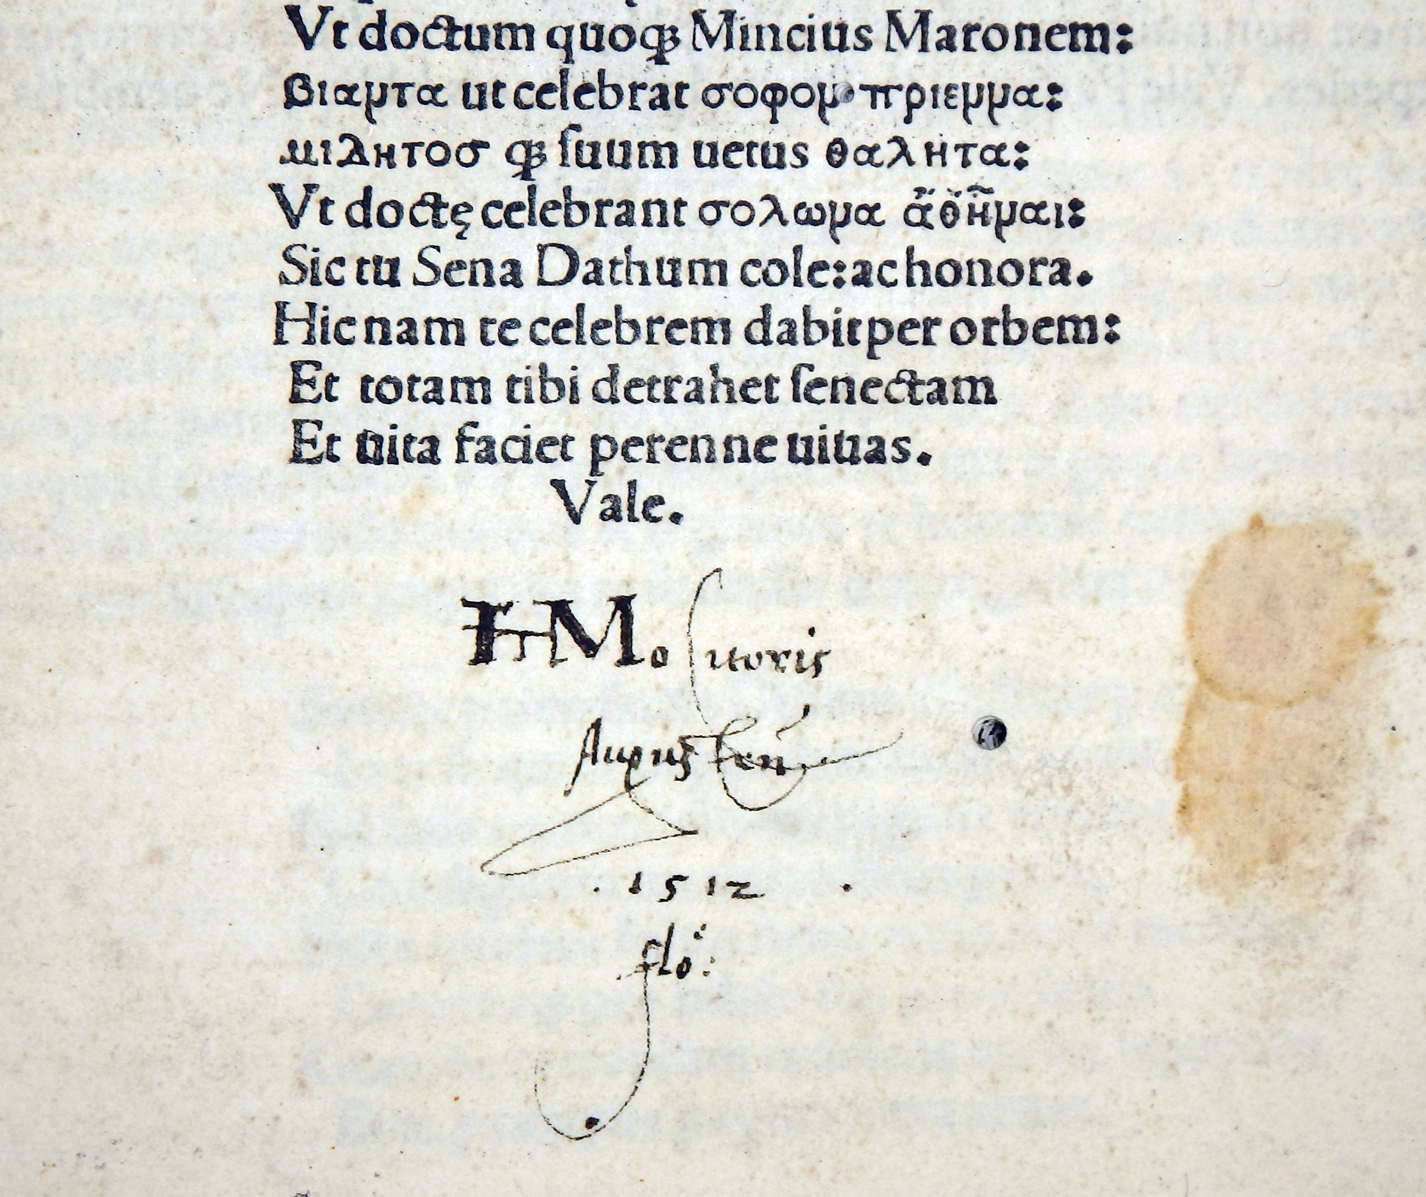 Vt doctum quoqꝫ Mincius Maronem:
βιαντα ut celebrat σοφον πριεννα:
μιλητοσ qꝫ ſuum uetus θαλητα:
Vt doctę celebrant σολωνα ἄθῆναι:
Sic tu Sena Dathum cole: ac honora.
Hic nam te celebrem dabit per orbem:
Et totam tibi detrahet ſenectam
Et uita faciet perenne uiuas.
Vale.
. 1512 .
flo: